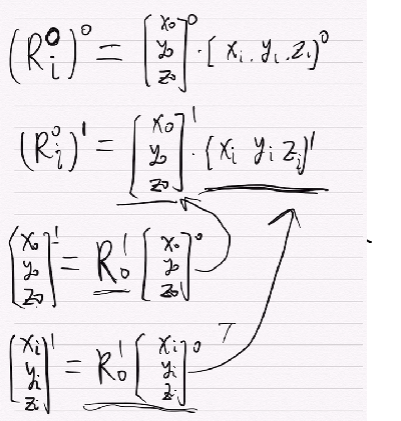 (R_i^0)^0 = [x₀ y₀ z₀]^0 · [x_i. y_i. z_i]^0
(R_i^0)^1 = [x₀ y₀ z₀]^1 · [x_i y_i z_i]^1
[x₀ y₀ z₀]^1 = R_0^1 [x₀ y₀ z₀]^0
T
[x_i y_i z_i]^1 = R_0^1 [x_i y_i z_i]^0